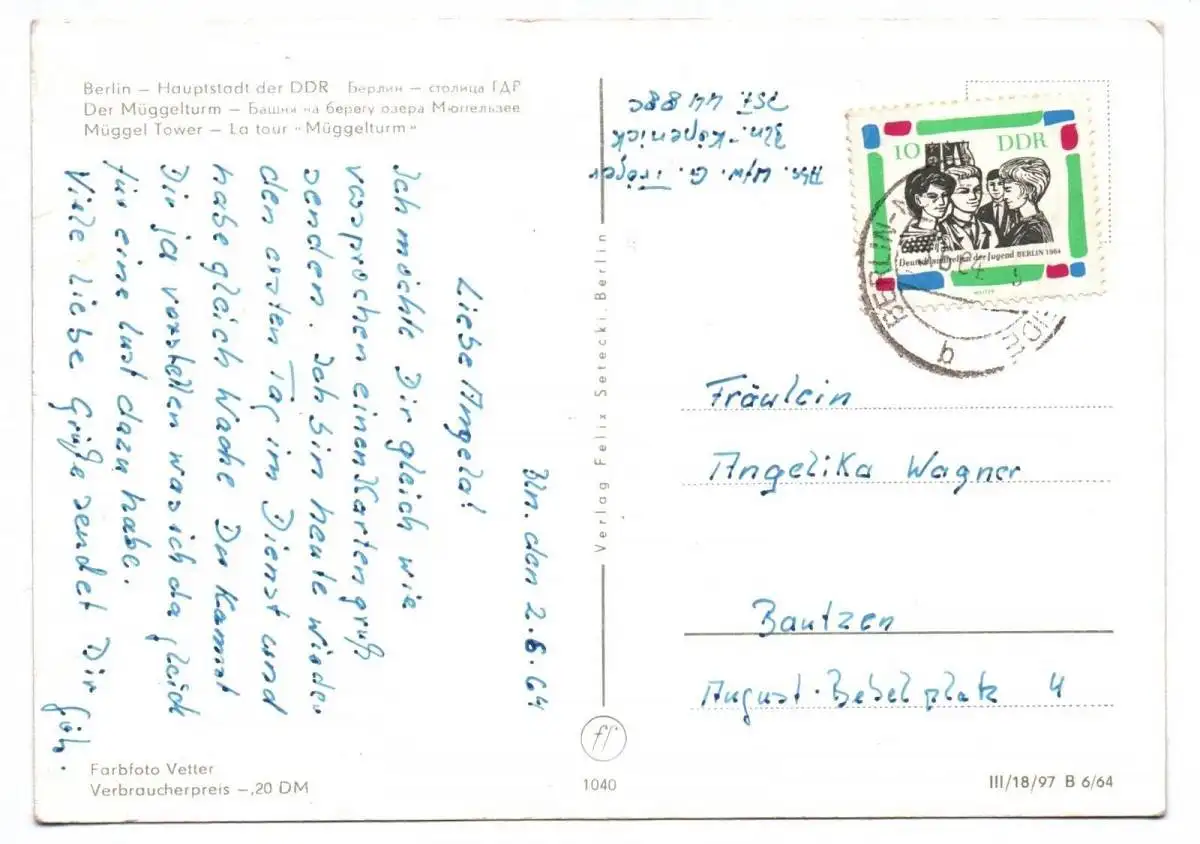 Berlin – Hauptstadt der DDR Берлин – столица ГДР
Der Müggelturm – Башня на берегу озера Мюггельзее
Müggel Tower – La tour «Müggelturm»
Bln. den 2.6.64
Liebe Angela!
Ich möchte Dir gleich wie
versprochen einen Kartengruß
senden. Ich bin heute wieder
den ersten Tag im Dienst und
habe gleich Wache Du kannst
Dir ja vorstellen was ich da gleich
für eine lust dazu habe.
Viele liebe Grüße sendet Dir
Farbfoto Vetter
Verbraucherpreis –,20 DM
Verlag Felix Setecki, Berlin
1040
Abs. Ufw. G. Tröger
Bln.-Köpenick
PSF 44188C
10 DDR
Deutschlandtreffen der Jugend BERLIN 1964
BERLIN-
b
Fräulein
Angelika Wagner
Bautzen
August-Bebelplatz 4
III/18/97 B 6/64